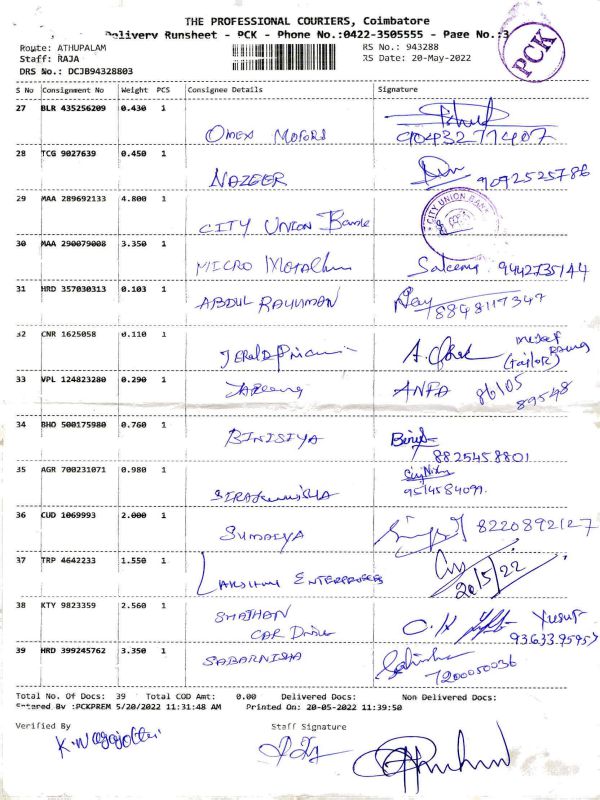 THE PROFESSIONAL COURIERS, Coimbatore
Delivery Runsheet - PCK - Phone No.:0422-3505555 - Page No.:3
PCK
Route: ATHUPALAM
RS No.: 943288
Staff: RAJA
RS Date: 20-May-2022
DRS No.: DCJB94328803
S No Consignment No Weight PCS Consignee Details Signature
27 BLR 435256209 0.430 1
OMEX MOTORS 9043277407
28 TCG 9027639 0.450 1
NAZEER 9092525786
29 MAA 289692133 4.800 1
CITY UNION Bank CITY UNION BANK
30 MAA 290079008 3.350 1
MICRO 9442735144
31 HRD 357030313 0.103 1
ABDUL RAHUMAN 8848117347
32 CNR 1625058 0.110 1
(tailor)
33 VPL 124823280 0.290 1
ANFA 86105
89548
34 BHO 500175980 0.760 1
BINISIYA
8825458801
35 AGR 700231071 0.980 1
9514584099.
36 CUD 1069993 2.000 1
SUMAIYA 8220892127
37 TRP 4642233 1.550 1
LAKSHMI ENTERPRISES 20/5/22
38 KTY 9823359 2.560 1
SHAJHAN Yusuf
CAR Driver 93633 95957
39 HRD 399245762 3.350 1
SABARNISHA
7200050036
Total No. Of Docs: 39 Total COD Amt: 0.00 Delivered Docs: Non Delivered Docs:
Entered By :PCKPREM 5/20/2022 11:31:48 AM Printed On: 20-05-2022 11:39:50
Verified By Staff Signature